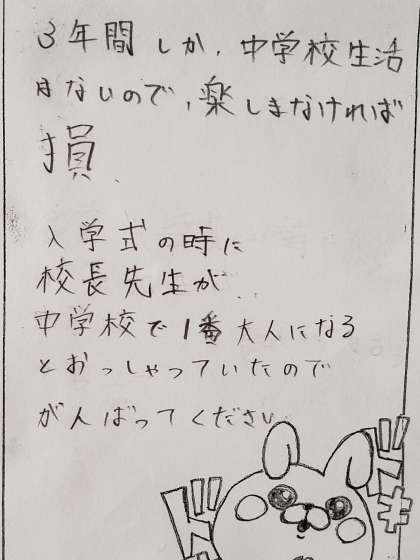 3年間しか、中学校生活
はないので、楽しまなければ
損
入学式の時に
校長先生が
中学校で1番大人になる
とおっしゃっていたので
がんばってください